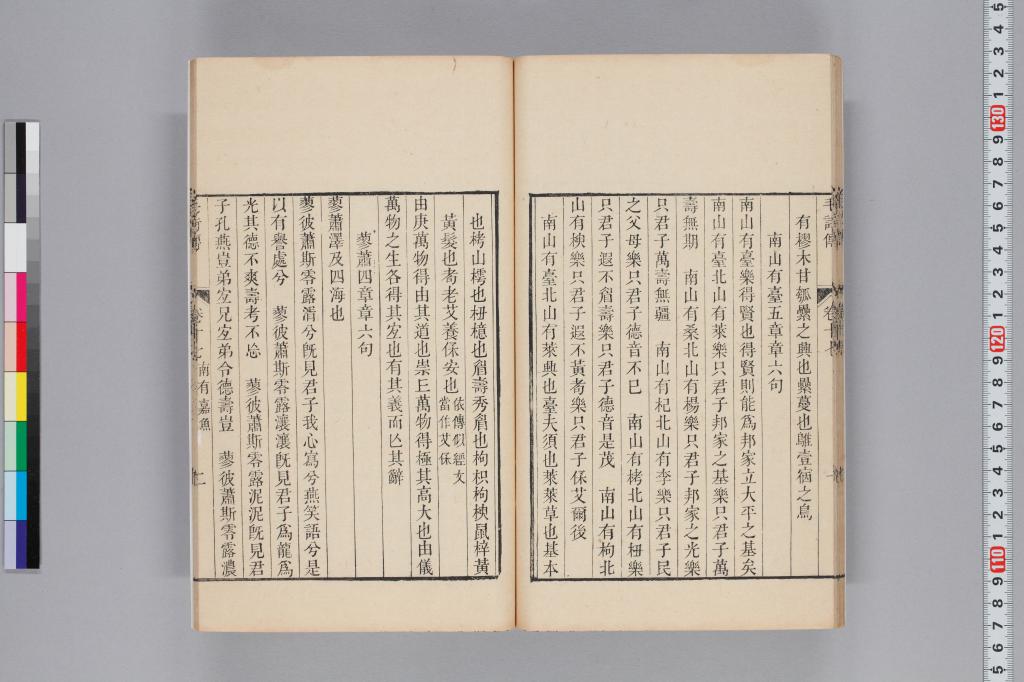 有樛木甘瓠纍之興也纍蔓也鵻壹宿之鳥
南山有臺五章章六句
南山有臺樂得賢也得賢則能爲邦家立大平之基矣
南山有臺北山有萊樂只君子邦家之基樂只君子萬
壽無期　南山有桑北山有楊樂只君子邦家之光樂
只君子萬壽無疆　南山有杞北山有李樂只君子民
之父母樂只君子德音不巳　南山有栲北山有杻樂
只君子遐不睂壽樂只君子德音是茂　南山有枸北
山有楰樂只君子遐不黃耇樂只君子保艾爾後
南山有臺北山有萊興也臺夫須也萊草也基本
也栲山樗也杻檍也睂壽秀睂也枸枳枸楰鼠梓黃
黃髮也耇老艾養保安也依傳似經文當作艾保
由庚萬物得由其道也崇丘萬物得極其高大也由儀
萬物之生各得其宐也有其義而亾其辭
蓼蕭四章章六句
蓼蕭澤及四海也
蓼彼蕭斯零露湑兮旣見君子我心寫兮燕笑語兮是
以有譽處兮　蓼彼蕭斯零露瀼瀼旣見君子爲龍爲
光其德不爽壽考不忘　蓼彼蕭斯零露泥泥旣見君
子孔燕豈弟宐兄宐弟令德壽豈　蓼彼蕭斯零露濃
毛詩傳
卷十七
南有嘉魚